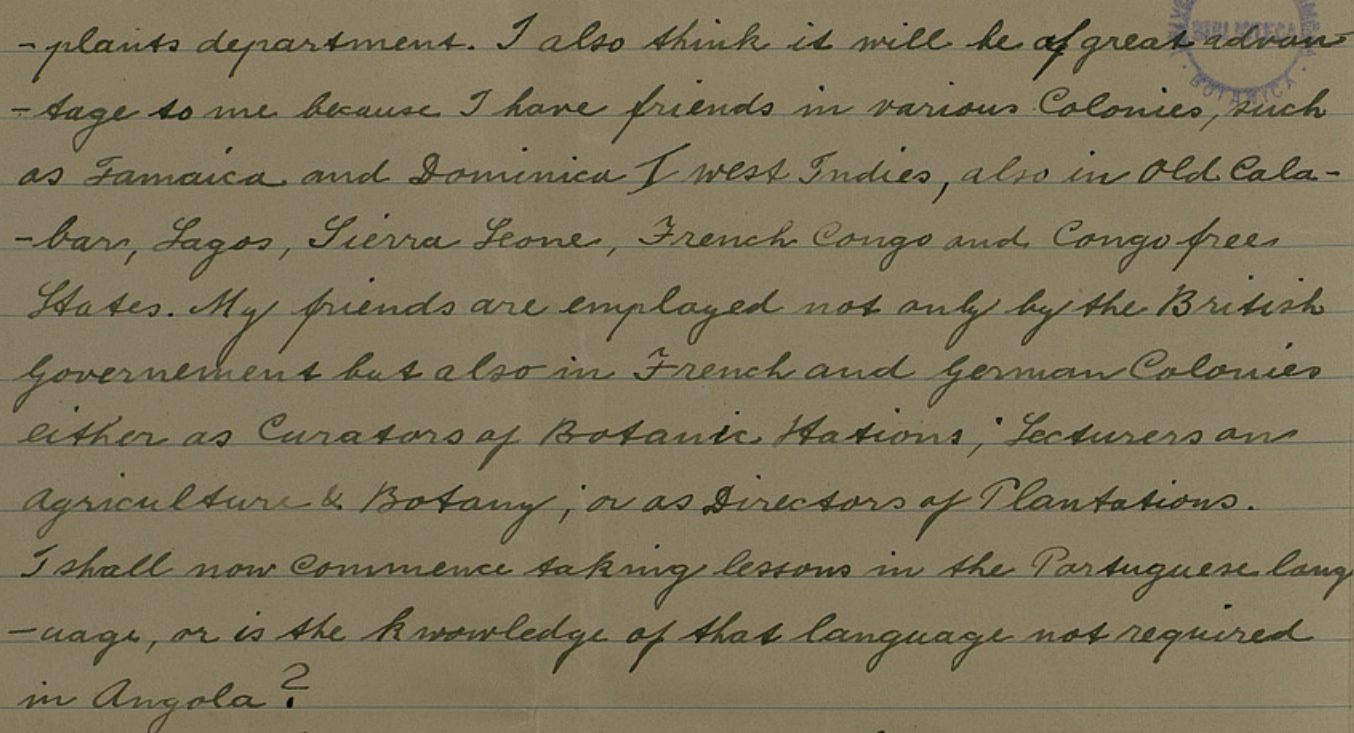 -plants department. I also think it will be of great advan-
-tage to me because I have friends in various Colonies, such
as Jamaica and Dominica I west Indies, also in Old Cala-
-bar, Lagos, Sierra Leone, French Congo and Congo free
States. My friends are employed not only by the British
Governement but also in French and German Colonies
either as Curators of Botanic Stations; Lecturers on
Agriculture & Botany; or as Directors of Plantations.
I shall now commence taking lessons in the Portuguese lang
-uage, or is the knowledge of that language not required
in Angola?
BIBLIOTECA
BOTANICA